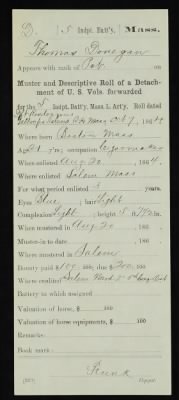 D. 5 Indpt. Batt'y, Mass.
Thomas Donegan
Appears with rank of Pvt. on
Muster and Descriptive Roll of a Detach-
ment of U. S. Vols. forwarded
for the 5 Indpt. Batt'y, Mass. L. Art'y. Roll dated
Gallops Island Mass Oct 9, 1864
Where born Boston Mass
Age 21 y'rs; occupation Cigarmaker
When enlisted Aug 20, 1864.
Where enlisted Salem Mass
For what period enlisted years.
Eyes Blue; hair Light
Complexion Light; height 5 ft. in.
When mustered in Aug 20, 186
Muster-in to date , 186
Where mustered Salem
Bounty paid $ 100; due $ 100
Where credited Salem Ward 5
Battery to which assigned
Valuation of horse, $ 100
Valuation of horse equipments, $ 100
Remarks:
Book mark:
Copyist.